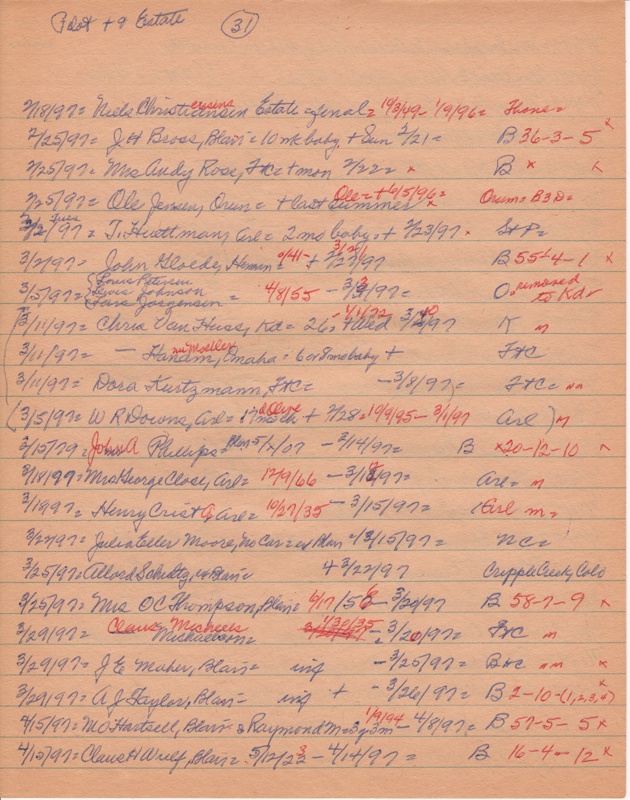 Pilot + 9 Estate 31
2/18/97= Niels Christiansen ensens Estate =final= 10/3/49- 1/9/96= Home=
2/25/97= J H Bross, Blair=10 mk baby + Sun 2/21= B 36-3-5 x
2/25/97= Mrs Andy Rose, F+C= + mon 2/22= x B x x
2/25/97= Ole Jensen, Orum= + last summer x Ole= +6/5/96= Orum= B3D=
3/2/97= Tues T. Huettman, Arl= 2 mo baby, + 2/23/97 x St P=
3/2/97= John Gloede, Herman= 0/41- + 2/27/97 3/2/1 B 55-4-1 x
3/5/97= Louis Petersen Lars Jorgensen = 4/8/55 - 3/3/97= O. removed to Kd
3/11/97= Chris Van Huss, Kd= 26= -1/1/72 +Wed 3/10/97 K m
3/11/97= - Hanam, Omaha= 6 or 8 mo baby + F+C
3/11/97= Dora Kurtzmann, F+C= -3/8/97= F+C= mm
(3/5/97= W R Downs, Arl= + 2/28= 10/9/95- 3/1/97 Arl ) m
3/15/79= John A Phillips= Blair 5/2/07 - 3/14/97= B x20-12-10 x
3/18/97= Mrs George Close, Arl= 12/9/66 -3/17/97= Arl= m
3/18/97= Henry Crist G, Arl= 10/27/35 -3/15/97= Arl m=
3/27/97= Julia Eller Moore, No Car= ex Blair + 3/15/97= NC=
3/25/97= Allord Schultz, x Blair= + 3/22/97 Cripple Creek, Colo
3/25/97= Mrs O C Thompson, Blair= 6/17/56 -3/20/97 B 58-7-9 x
3/29/97= Claus Michaelson= 4/30/35 -3/20/97 F+C m
3/29/97= J E Maher, Blair= inf -3/25/97= B+C mm x
3/29/97= A J Taylor, Blair= inf + -3/26/97= B 2-10-(1,2,3,4) x
4/15/97= M O Hartsell, Blair= Raymond M=3y3m 1/9/94 - 4/8/97= B 57-5-5 x
4/15/97= Claus H Wulf, Blair= 5/12/23 - 4/14/97= B 16-4-12 x